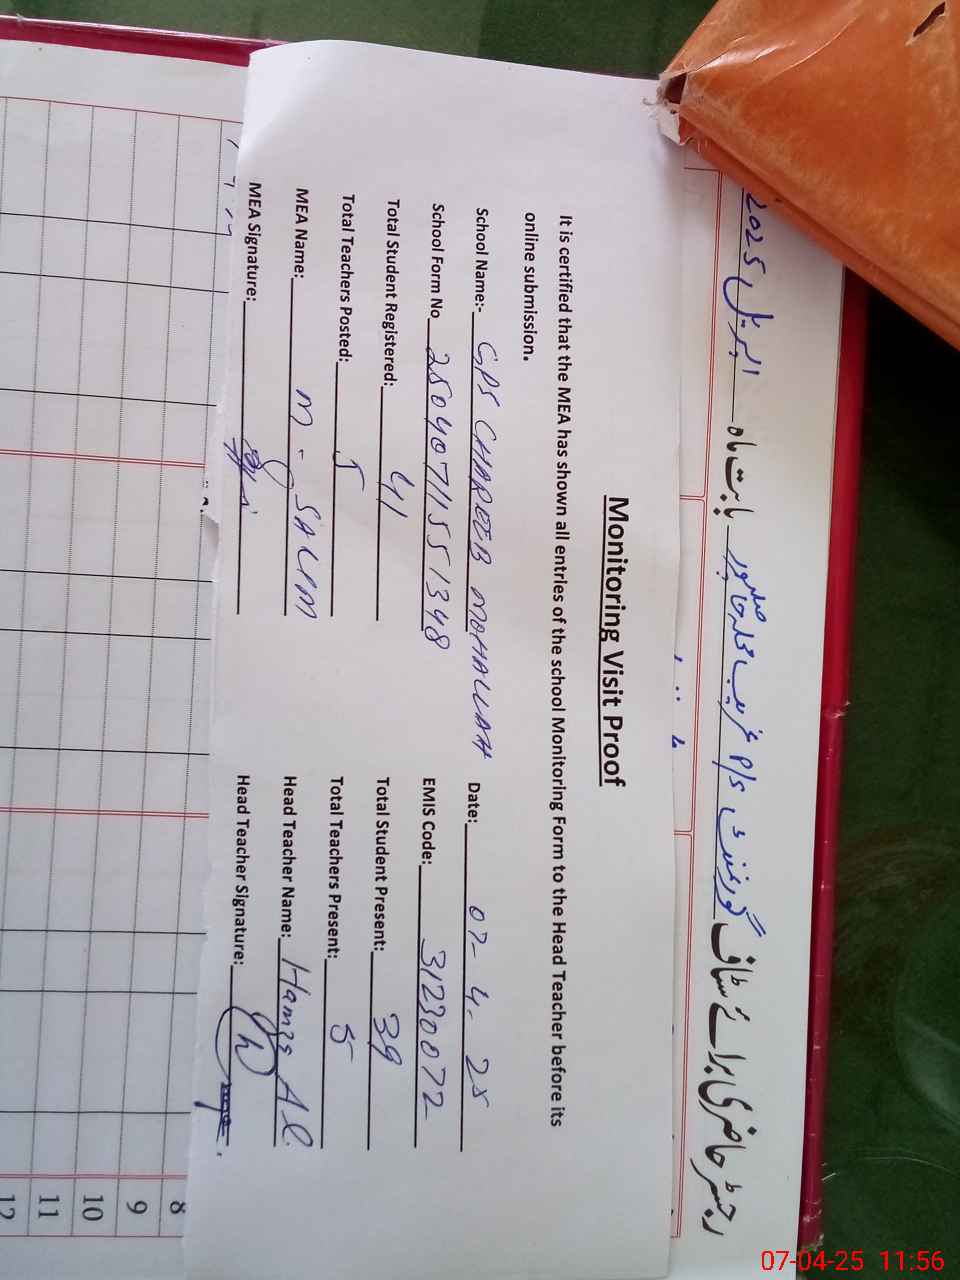 رجسٹر حاضری برائے سٹاف گورنمنٹ P/S غریب محلہ حاصلپور بابت ماہ اپریل 2025
Monitoring Visit Proof
It is certified that the MEA has shown all entries of the school Monitoring Form to the Head Teacher before its
online submission.
School Name:- GPS GHAREEB MOHALLAH Date: 07-4-25
School Form No 25040711551348 EMIS Code: 31230072
Total Student Registered: 41 Total Student Present: 39
Total Teachers Posted: 5 Total Teachers Present: 5
MEA Name: M. SALEEM Head Teacher Name: Hamza Ali
MEA Signature: Head Teacher Signature:
8
9
10
11
12
07-04-25 11:56